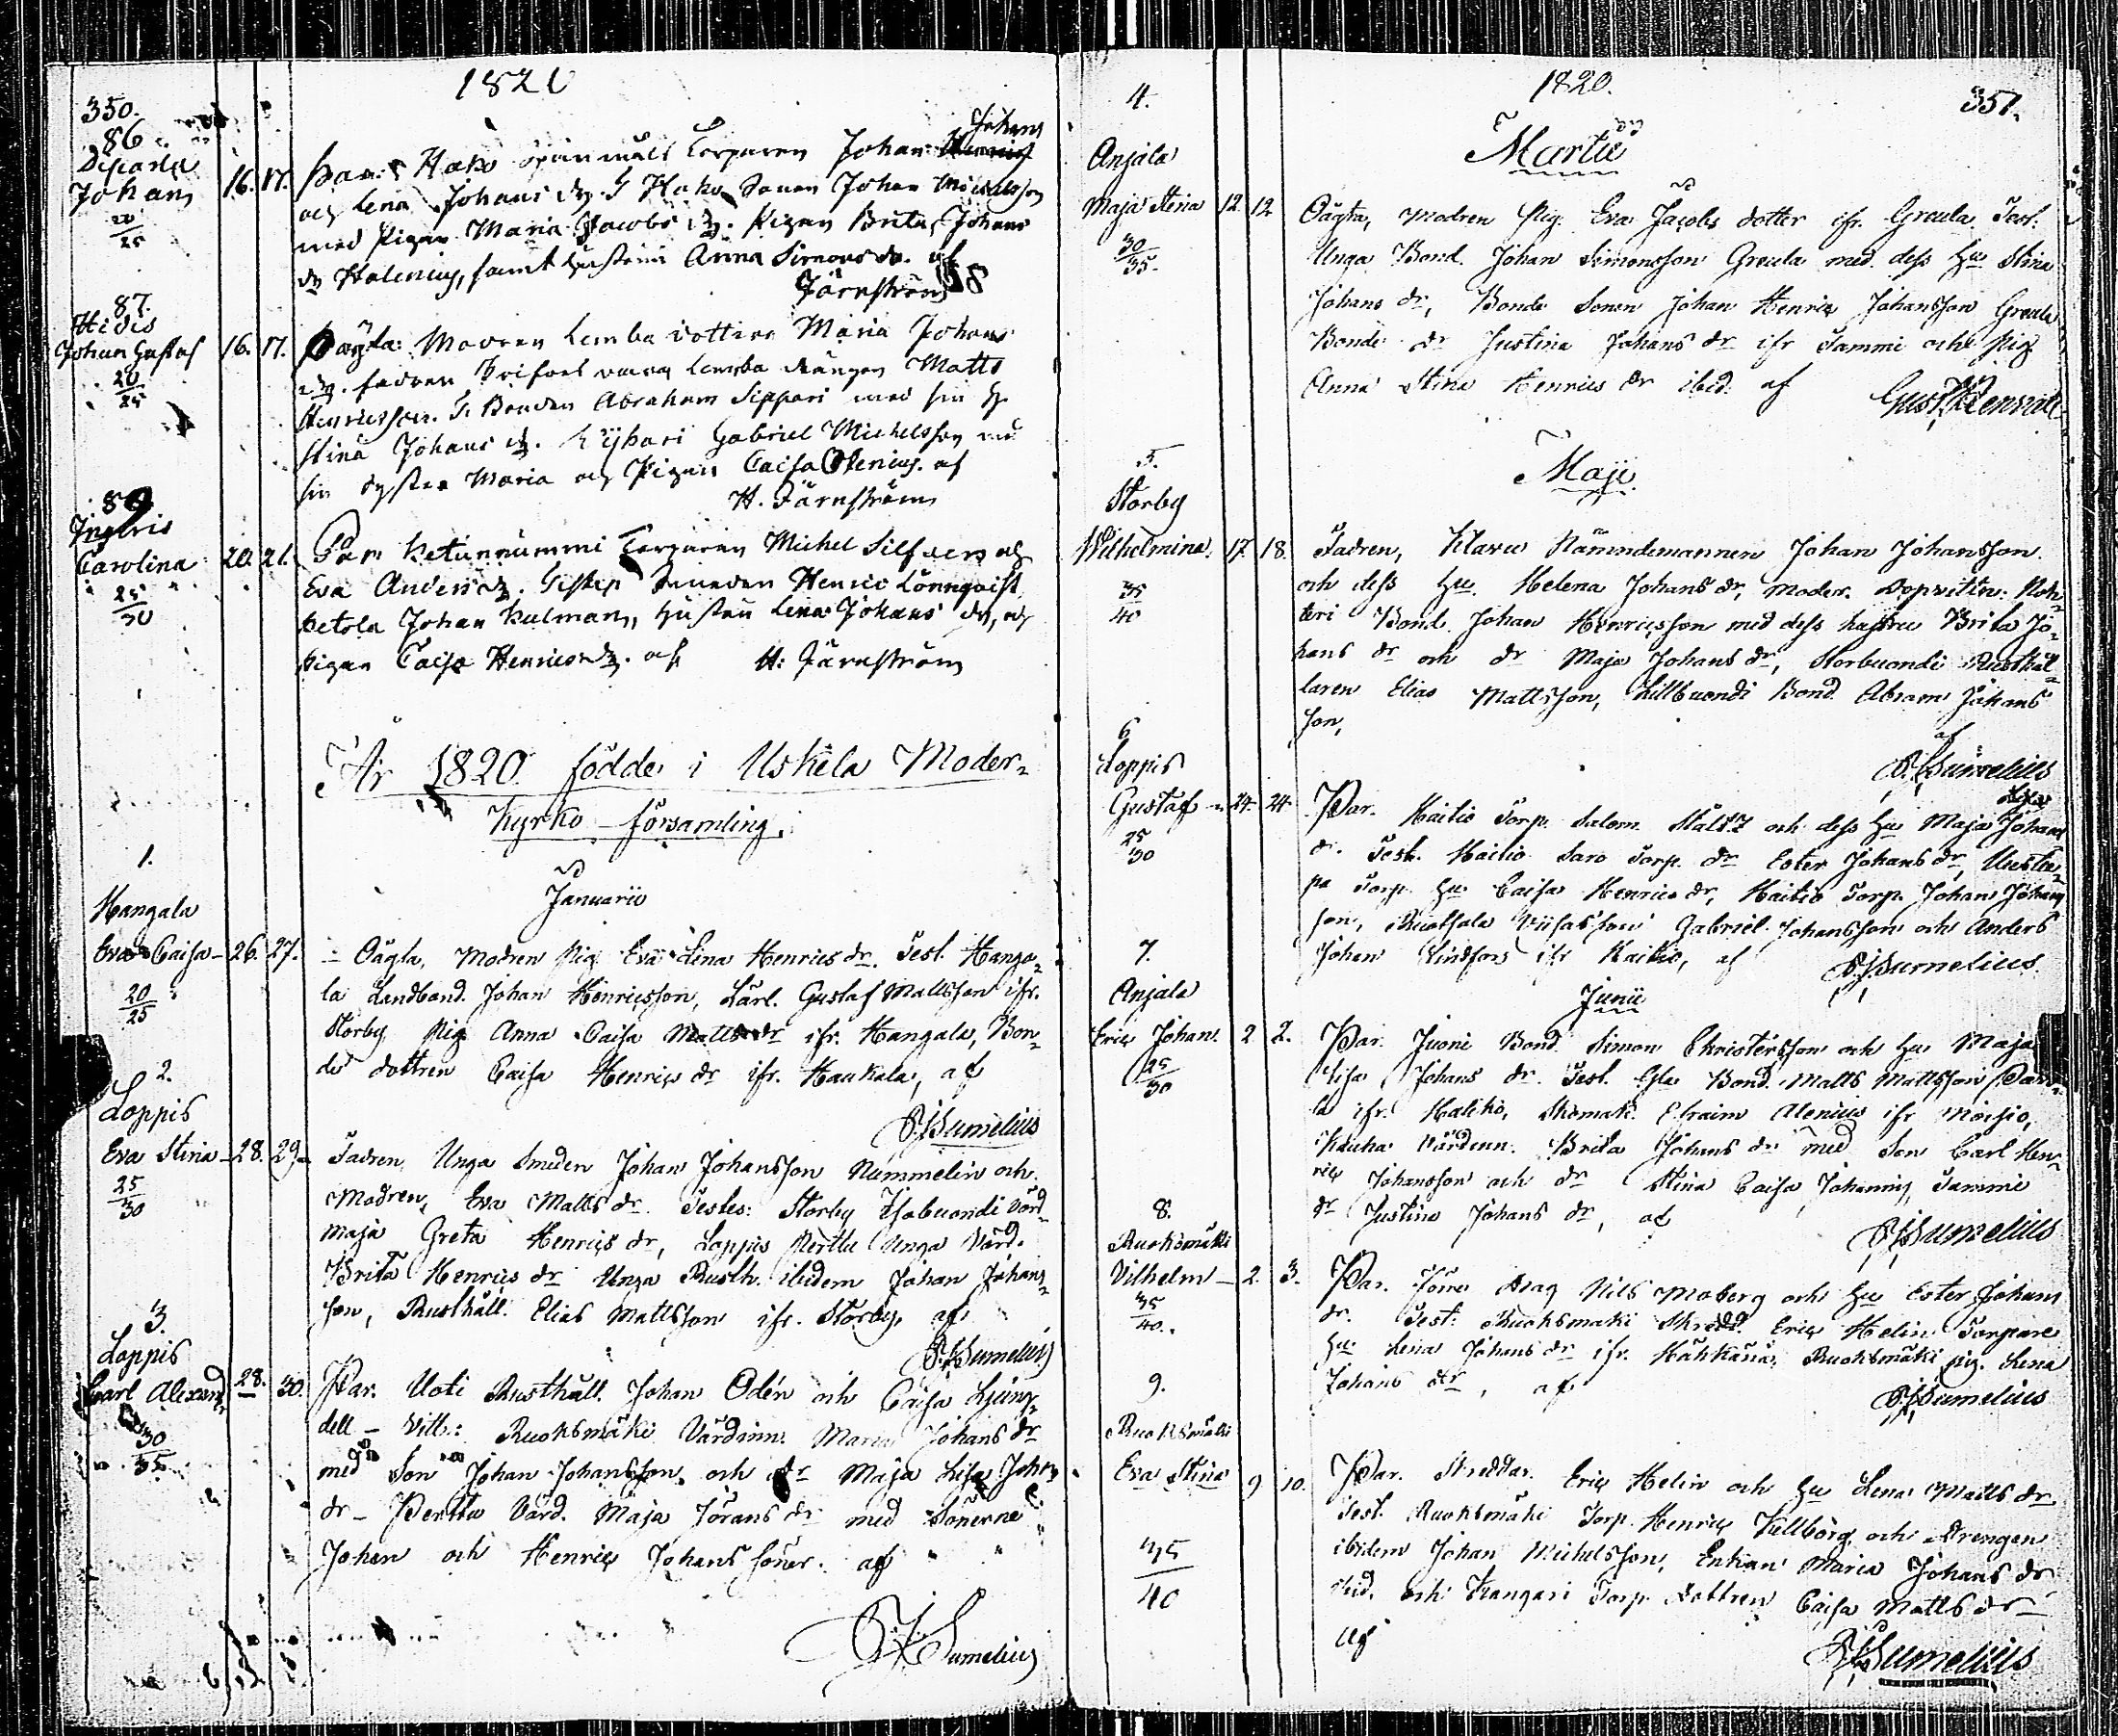 350.
1820
86
Johan
20
25
16. 17.
Johans
Par: Hako Torparen Johan
och Lena Johans dr. Hako Sonen Johan Michelsson
med Pigan Maria Jacobs dr. Pigan Brita Johans
dr Halenius, samt hustrun Anna Simons dr. af
Järnström
87.
Johan Gustaf
20
25
16. 17.
Oägta: Modren Lemba dottren Maria Johans
dr. fadren Lemba drängen Matts
Henricsson. Bonden Abraham Sippari med sin h.
Stina Johans dr. Gabriel Michelsson med
sin syster Maria och Pigan Caisa Alenius. af
H. Järnström
Carolina
25
30
20. 21.
Par. Torparen Michel Silfver och
Eva Anders dr. Henric Lönnqvist
Ketola Johan Kulman, hustru Lena Johans dr, och
Pigan Caisa Henrics dr. af H: Järnström
År 1820 födde i Uskela Moder-
Kyrko-församling.
Januarii
1.
Hangala
Eva Caisa
20
25
26. 27.
Oägta, Modren Pig. Eva Lena Henrics dr. Test. Hanga-
la Landbond. Johan Henricsson, Kärl. Gustaf Mattsson ifr.
Storby Pig. Anna Caisa Matts dr ifr. Hangala, Bon-
de dottren Caisa Henrics dr ifr. Haukala, af
Sumelius
2.
Loppis
Eva Stina
25
30
28. 29.
Fadren Unga Smeden Johan Johansson Nummelin och
Modren, Eva Matts dr. Testes: Storby Isobuondi Värd.
Maja Greta Henrics dr, Loppis Perttu Unga Värd.
Brita Henrics dr Unga Rusth. ibidem Johan Johans-
son, Rusthåll. Elias Mattsson ifr. Storby, af
Sumelius
3.
Loppis
Carl Alexand.
30
35
28. 30.
Par. Uoti Rusthåll. Johan Odén och Caisa Ljung-
dell - Vitt.: Ruoksmäki Värdinn. Maria Johans dr
med Son Johan Johansson och dr Maja Lisa Johans
dr - Perttu Värd. Maja Jörans dr med Sönerne
Johan och Henric Johans söner. af
Sumelius
1820.
351.
Martii
4.
Anjala
Maja Stina
30
35.
12 12
Oägta, Modren Pig. Eva Jacobs dotter ifr. Greula. Test.
Unga Bond. Johan Simonsson Greula med dess Hu Stina
Johans dr, Bonde Sonen Johan Henric Johansson Greula
Bonde dr Justina Johans dr ifr Tammi och Pig.
Anna Stina Henrics dr ibid. af
Maji
5.
Storby
Wilhelmina.
35
40
17. 18.
Fadren, Klaru Nämndemannen Johan Johansson
och dess Hu. Helena Johans dr, Moder. Dopvittn:
Bond. Johan Henricsson med dess hustru Brita Jo-
hans dr och dr Maja Johans dr, Storbuondi Rusthål-
laren Elias Mattsson, Lillbuondi Bond. Abram Johans
son,
af
Sumelius
6
Loppis
Gustaf
25
30
24. 24.
Lisa
Par. Kaitio Torp. Salom. Stålt och dess Hu Maja Johans
dr. Test. Kaitio Saro Torp. dr Ester Johans dr,
pa Torp. Hu Caisa Henrics dr, Kaitio Torp. Johan Johans
son, Gabriel Johansson och Anders
Johan Lindfors ifr Kaitio, af Sumelius.
Junii
7.
Anjala
Eric Johan.
25
30
2 2.
Par. Juoni Bond. Simon Christersson och Hu Maja
Lisa Johans dr. Test. Bond. Matts Mattsson
ifr. Halikko, Skomak. Efraim Alenius ifr Moisio,
Värdinn. Brita Johans dr med Son Carl Hen-
ric Johansson och dr Stina Caisa Tammi
dr Justina Johans dr, af Sumelius
8.
Ruoksmäki
Vilhelm
35
40.
2. 3.
Par. Nils Moberg och Hu Ester Johans
dr. Test: Ruoksmäki Skredd. Eric Helin Torpare
Hu Lena Johans dr ifr. Ruoksmäki Pig. Lena
Johans dr, af Sumelius
9.
Ruoksmäki
Eva Stina
35
40
9 10.
Par. Skreddar. Eric Helin och Hu Lena Matts dr
Test. Ruoksmäki Torp. Henric Kellborg och Drengen
ibidem Johan Michelsson, Enkan Maria Johans dr
ibid. och Kangari Torp. Dottren Caisa Matts dr
af
Sumelius